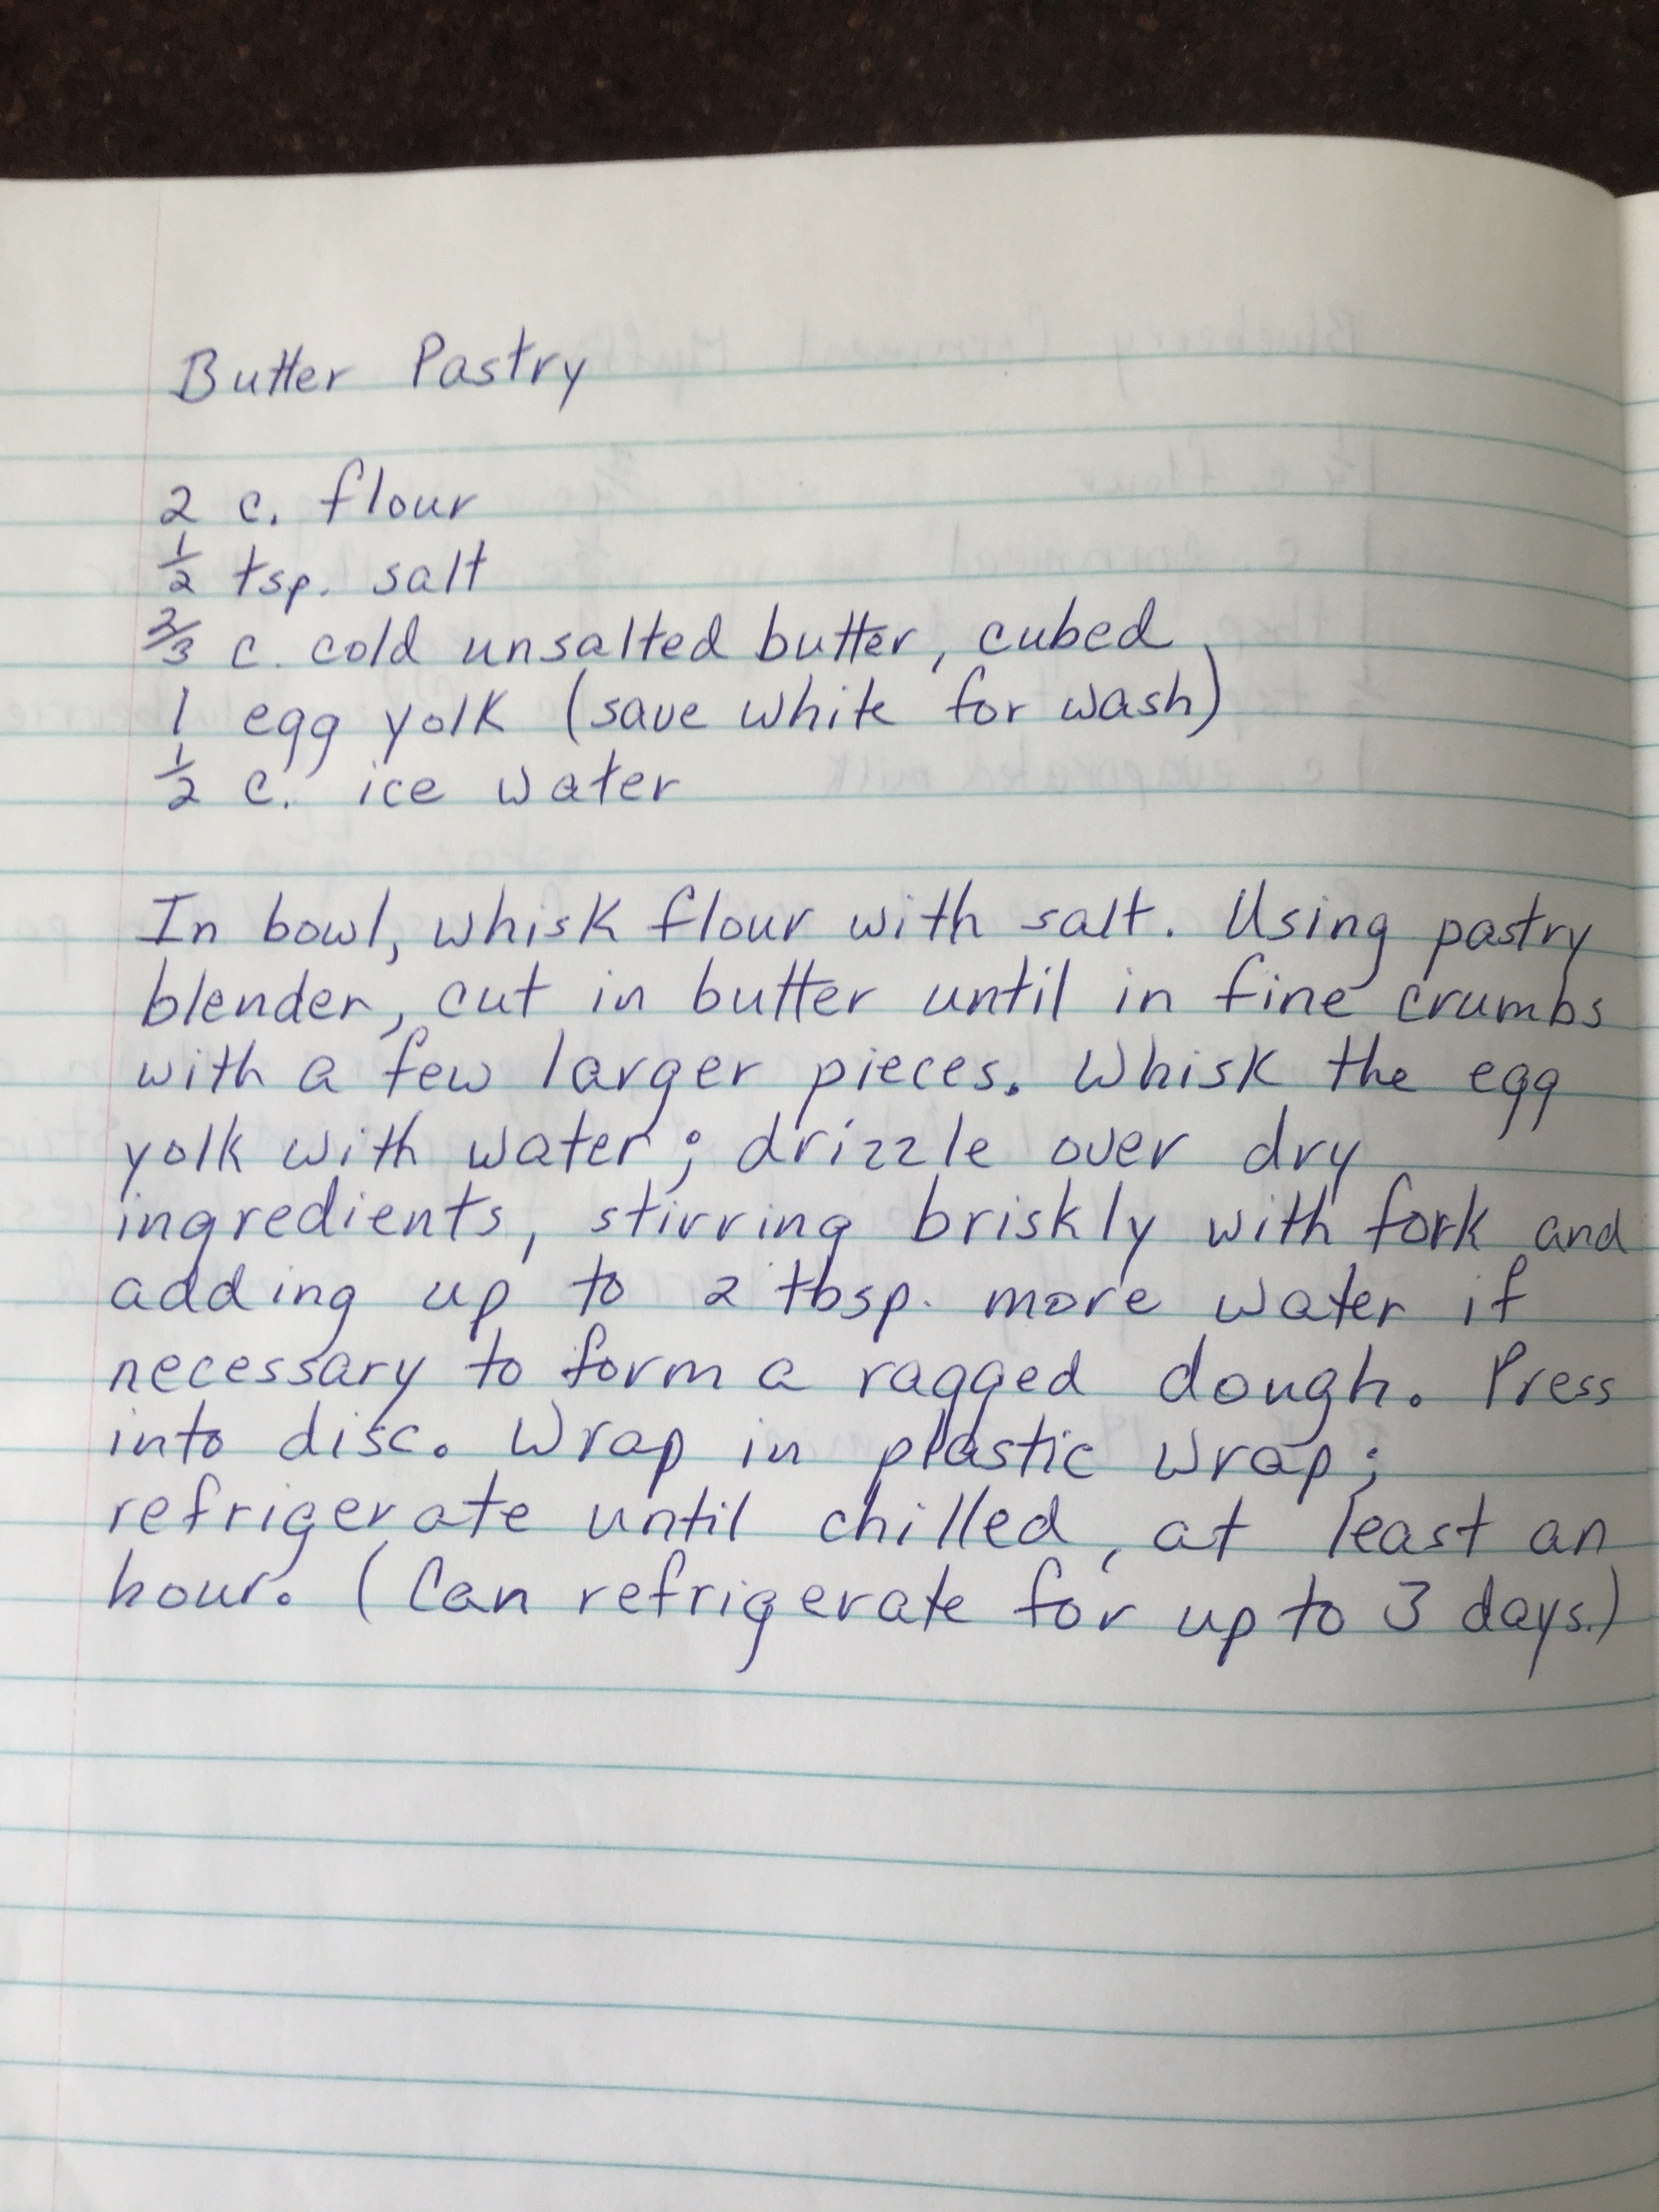 Butter Pastry
2 c. flour
1/2 tsp. salt
2/3 c. cold unsalted butter, cubed
1 egg yolk (save white for wash)
1/2 c. ice water
In bowl, whisk flour with salt. Using pastry
blender, cut in butter until in fine crumbs
with a few larger pieces. Whisk the egg
yolk with water; drizzle over dry
ingredients, stirring briskly with fork and
adding up to 2 tbsp. more water if
necessary to form a ragged dough. Press
into disc. Wrap in plastic wrap;
refrigerate until chilled, at least an
hour. (Can refrigerate for up to 3 days.)